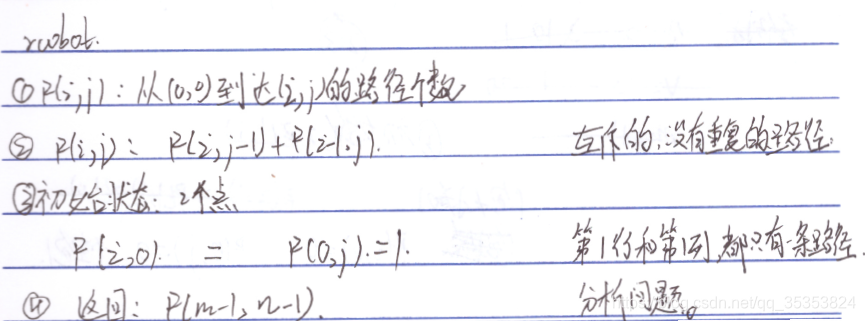 robot.
①F(i,j): 从(0,0)到达(i,j)的路径个数
② F(i,j): F(i,j-1)+F(i-1,j). 互斥的,没有重复的路径.
③初始状态: 2个点
F(i,0). = F(0,j).=1. 第1行和第1列,都只有一条路径.
④ 返回: F(m-1,n-1). 分析问题。
csdn.net/qq_35353824